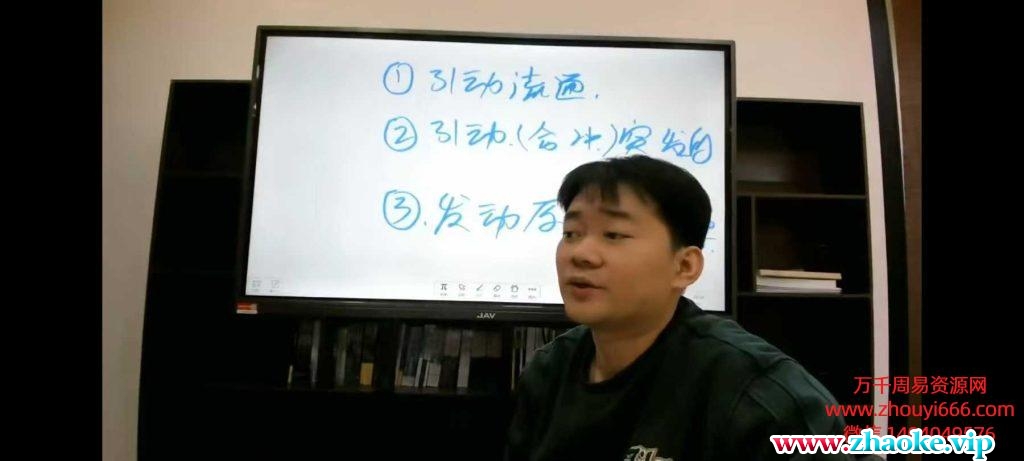 ① 引动流通.
② 引动.(合冲)突发的
③.发动
JAV
万千周易资源网
www.zhouyi666.com
www.zhaoke.vip